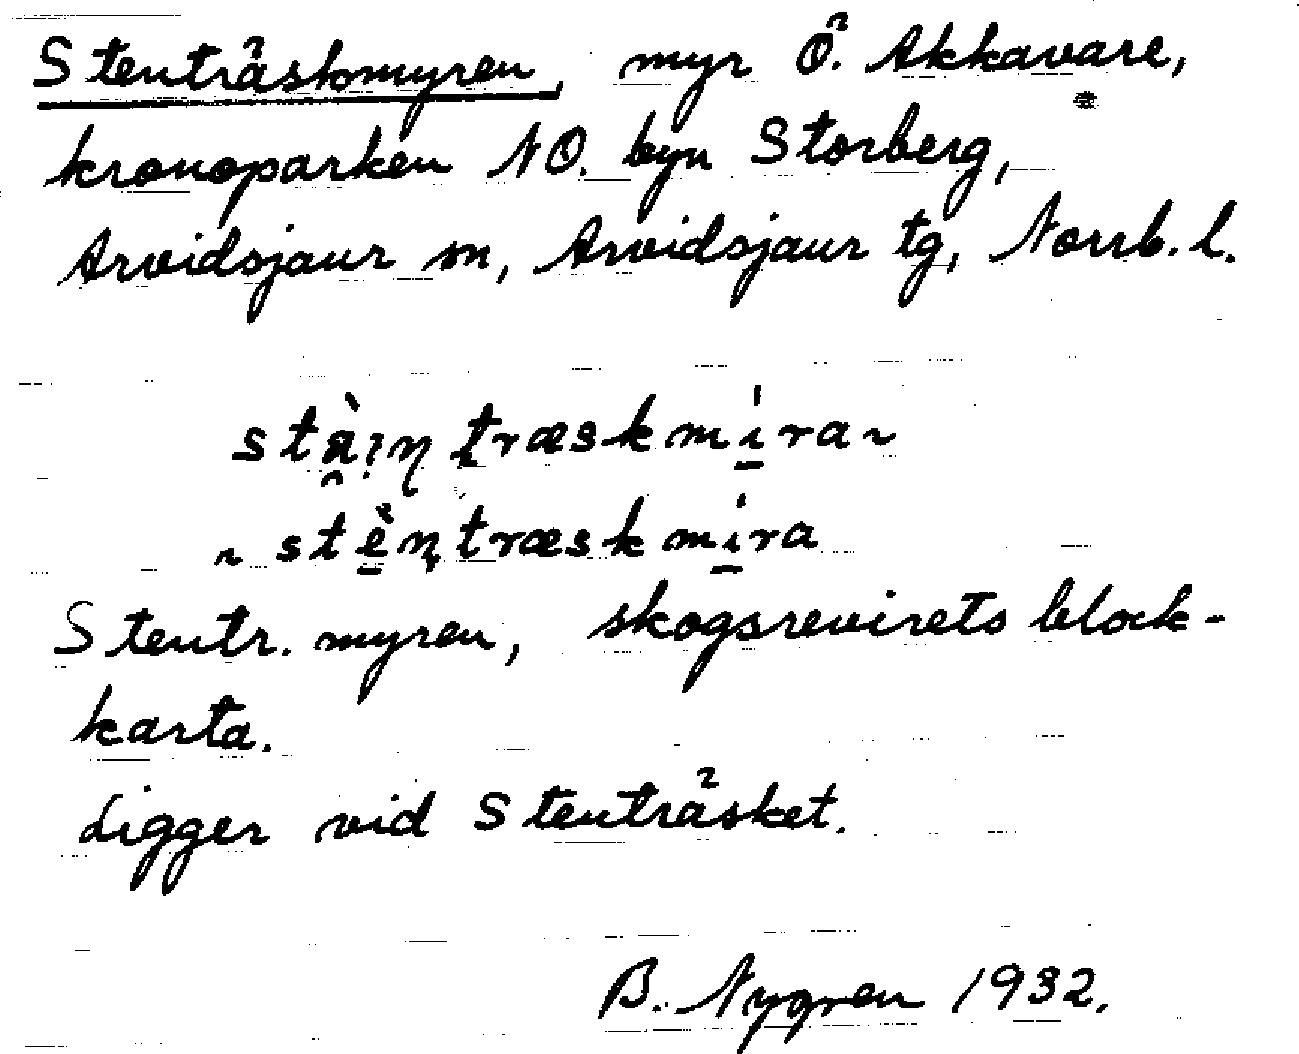 Stenträskmyren, myr Ö. Akkavare,
kronoparken NO. byn Storberg,
Arvidsjaur sn, Arvidsjaur tg, Norrb. l.
stà̯ın̥træskmı́ra~
~ stèn̥træskmı́ra
Stentr. myren, skogsrevirets block-
karta.
Ligger vid Stenträsket.
B. Nygren 1932.